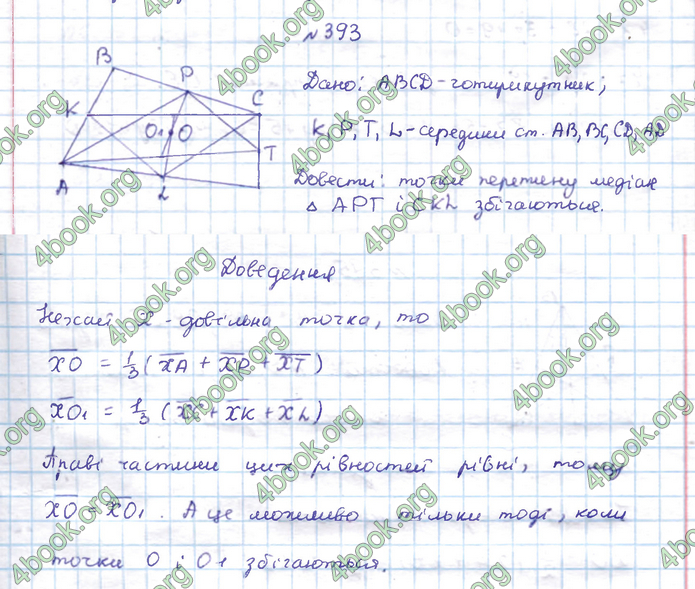 № 393
Дано: ABCD - чотирикутник;
K, P, T, L - середини ст. AB, BC, CD, AD
Довести: точки перетину медіан
△ APT і CKL збігаються.
B
P
K
C
O₁ O
T
A
L
Доведення
Нехай X - довільна точка, то
XO = 1/3 (XA + XP + XT)
XO₁ = 1/3 (XC + XK + XL)
Праві частини цих рівностей рівні, тому
XO = XO₁. А це можливо тільки тоді, коли
точки O і O₁ збігаються.
4book.org